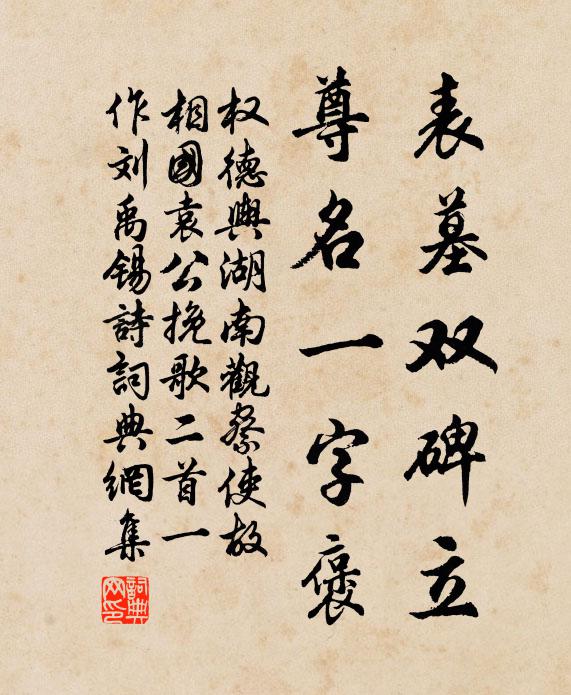 表墓双碑立
尊名一字褒
权德舆湖南觀察使故
相國袁公挽歌二首一
作刘禹锡詩詞典網集
詞典网印